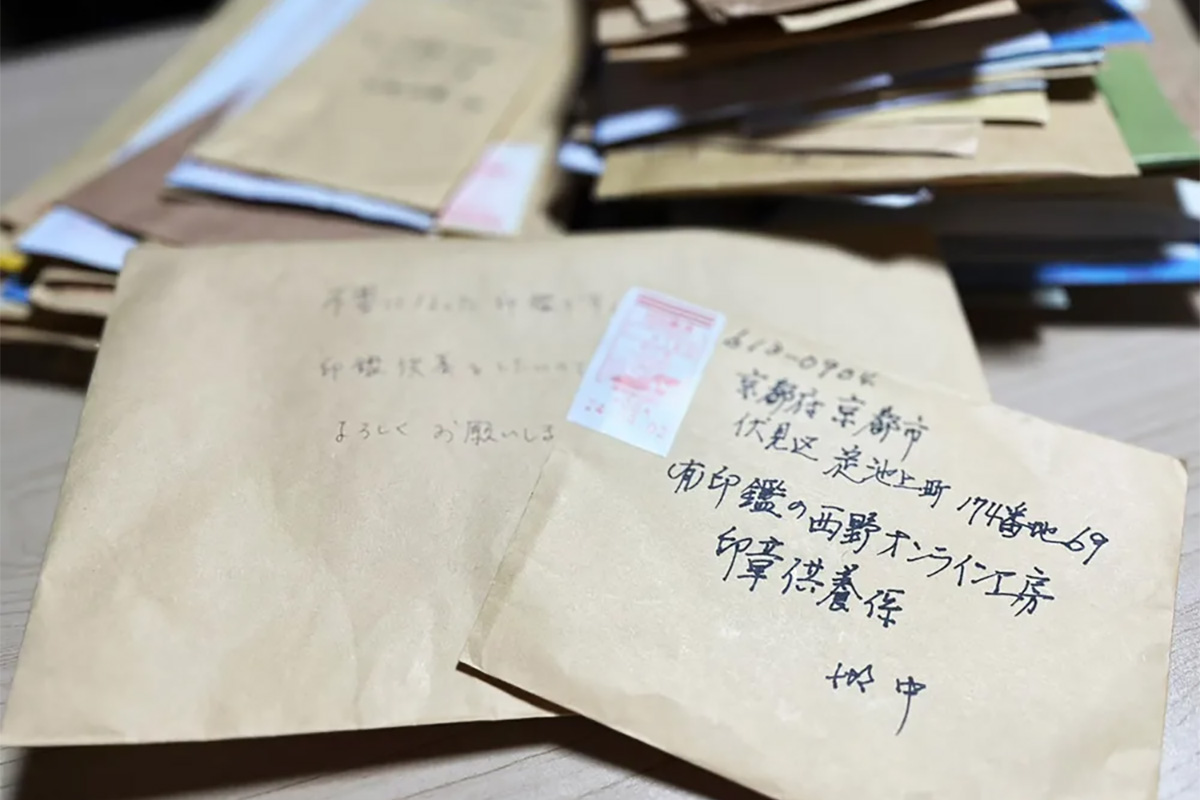 不要になった印鑑です。
印鑑供養をしたいので
よろしくお願いしま
612-0904
京都府京都市
伏見区 池上町 174番地69
(有)印鑑の西野オンライン工房
印章供養係
御中